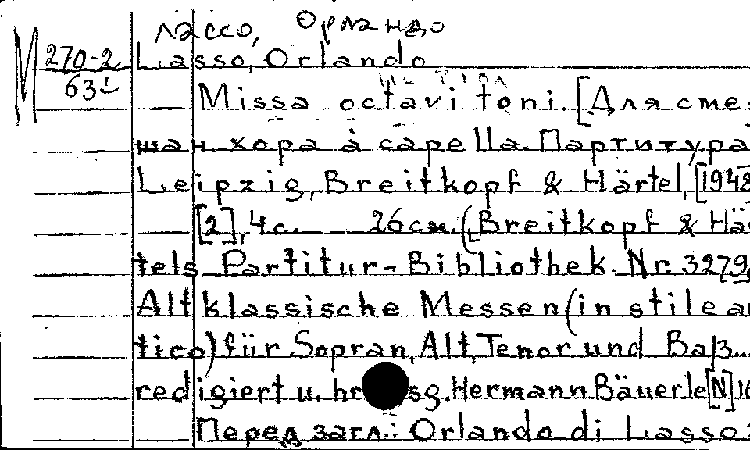 лассо, Орландо
М 270-2 Lasso, Orlando
63
Missa octavi toni. [Для сме-
шан. хора à capella. Партитура
Leipzig, Breitkopf & Härtel, [1948
[2], 4 с. 26 см. (Breitkopf & Hä
tels Partitur-Bibliothek. Nr. 3279
Alt klassische Messen (in stile an
tico) für Sopran, Alt, Tenor und Baß...
redigiert u. hr sg. Hermann Bäuerle [N]
Перед загл.: Orlando di Lasso